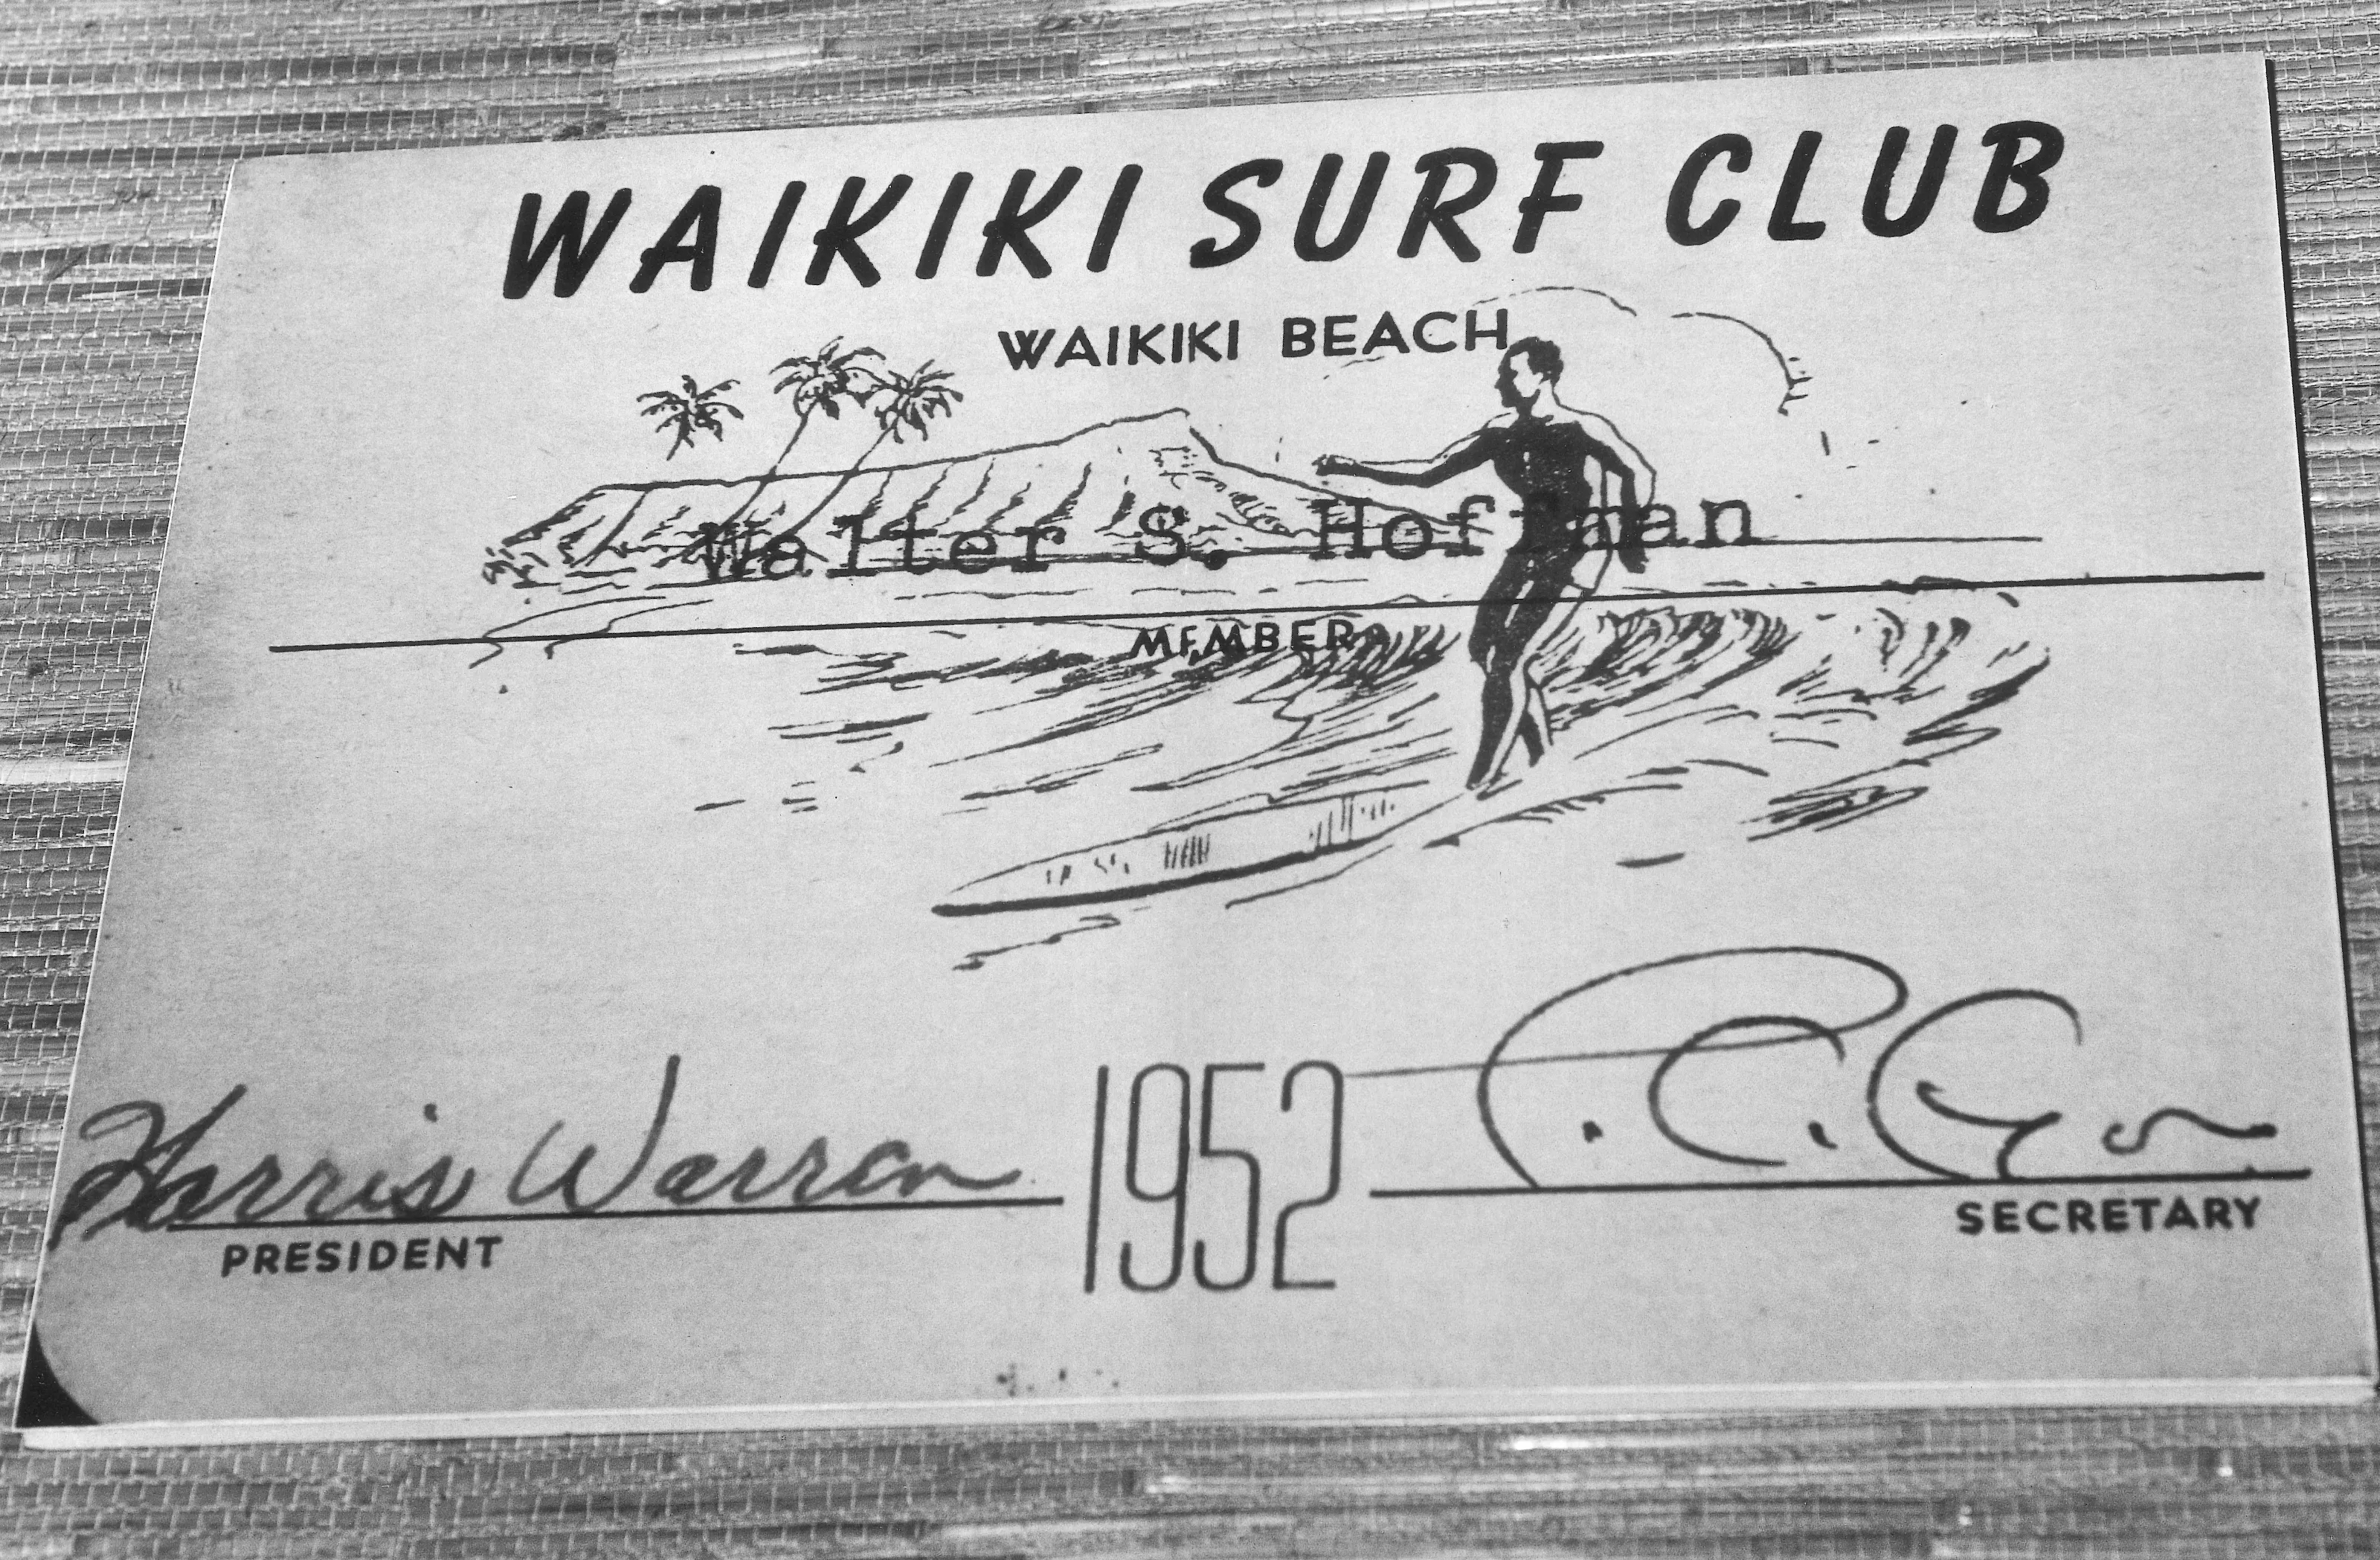 WAIKIKI SURF CLUB
WAIKIKI BEACH
Walter S. Hoffman
MEMBER
Harris Warren
1952
PRESIDENT
SECRETARY